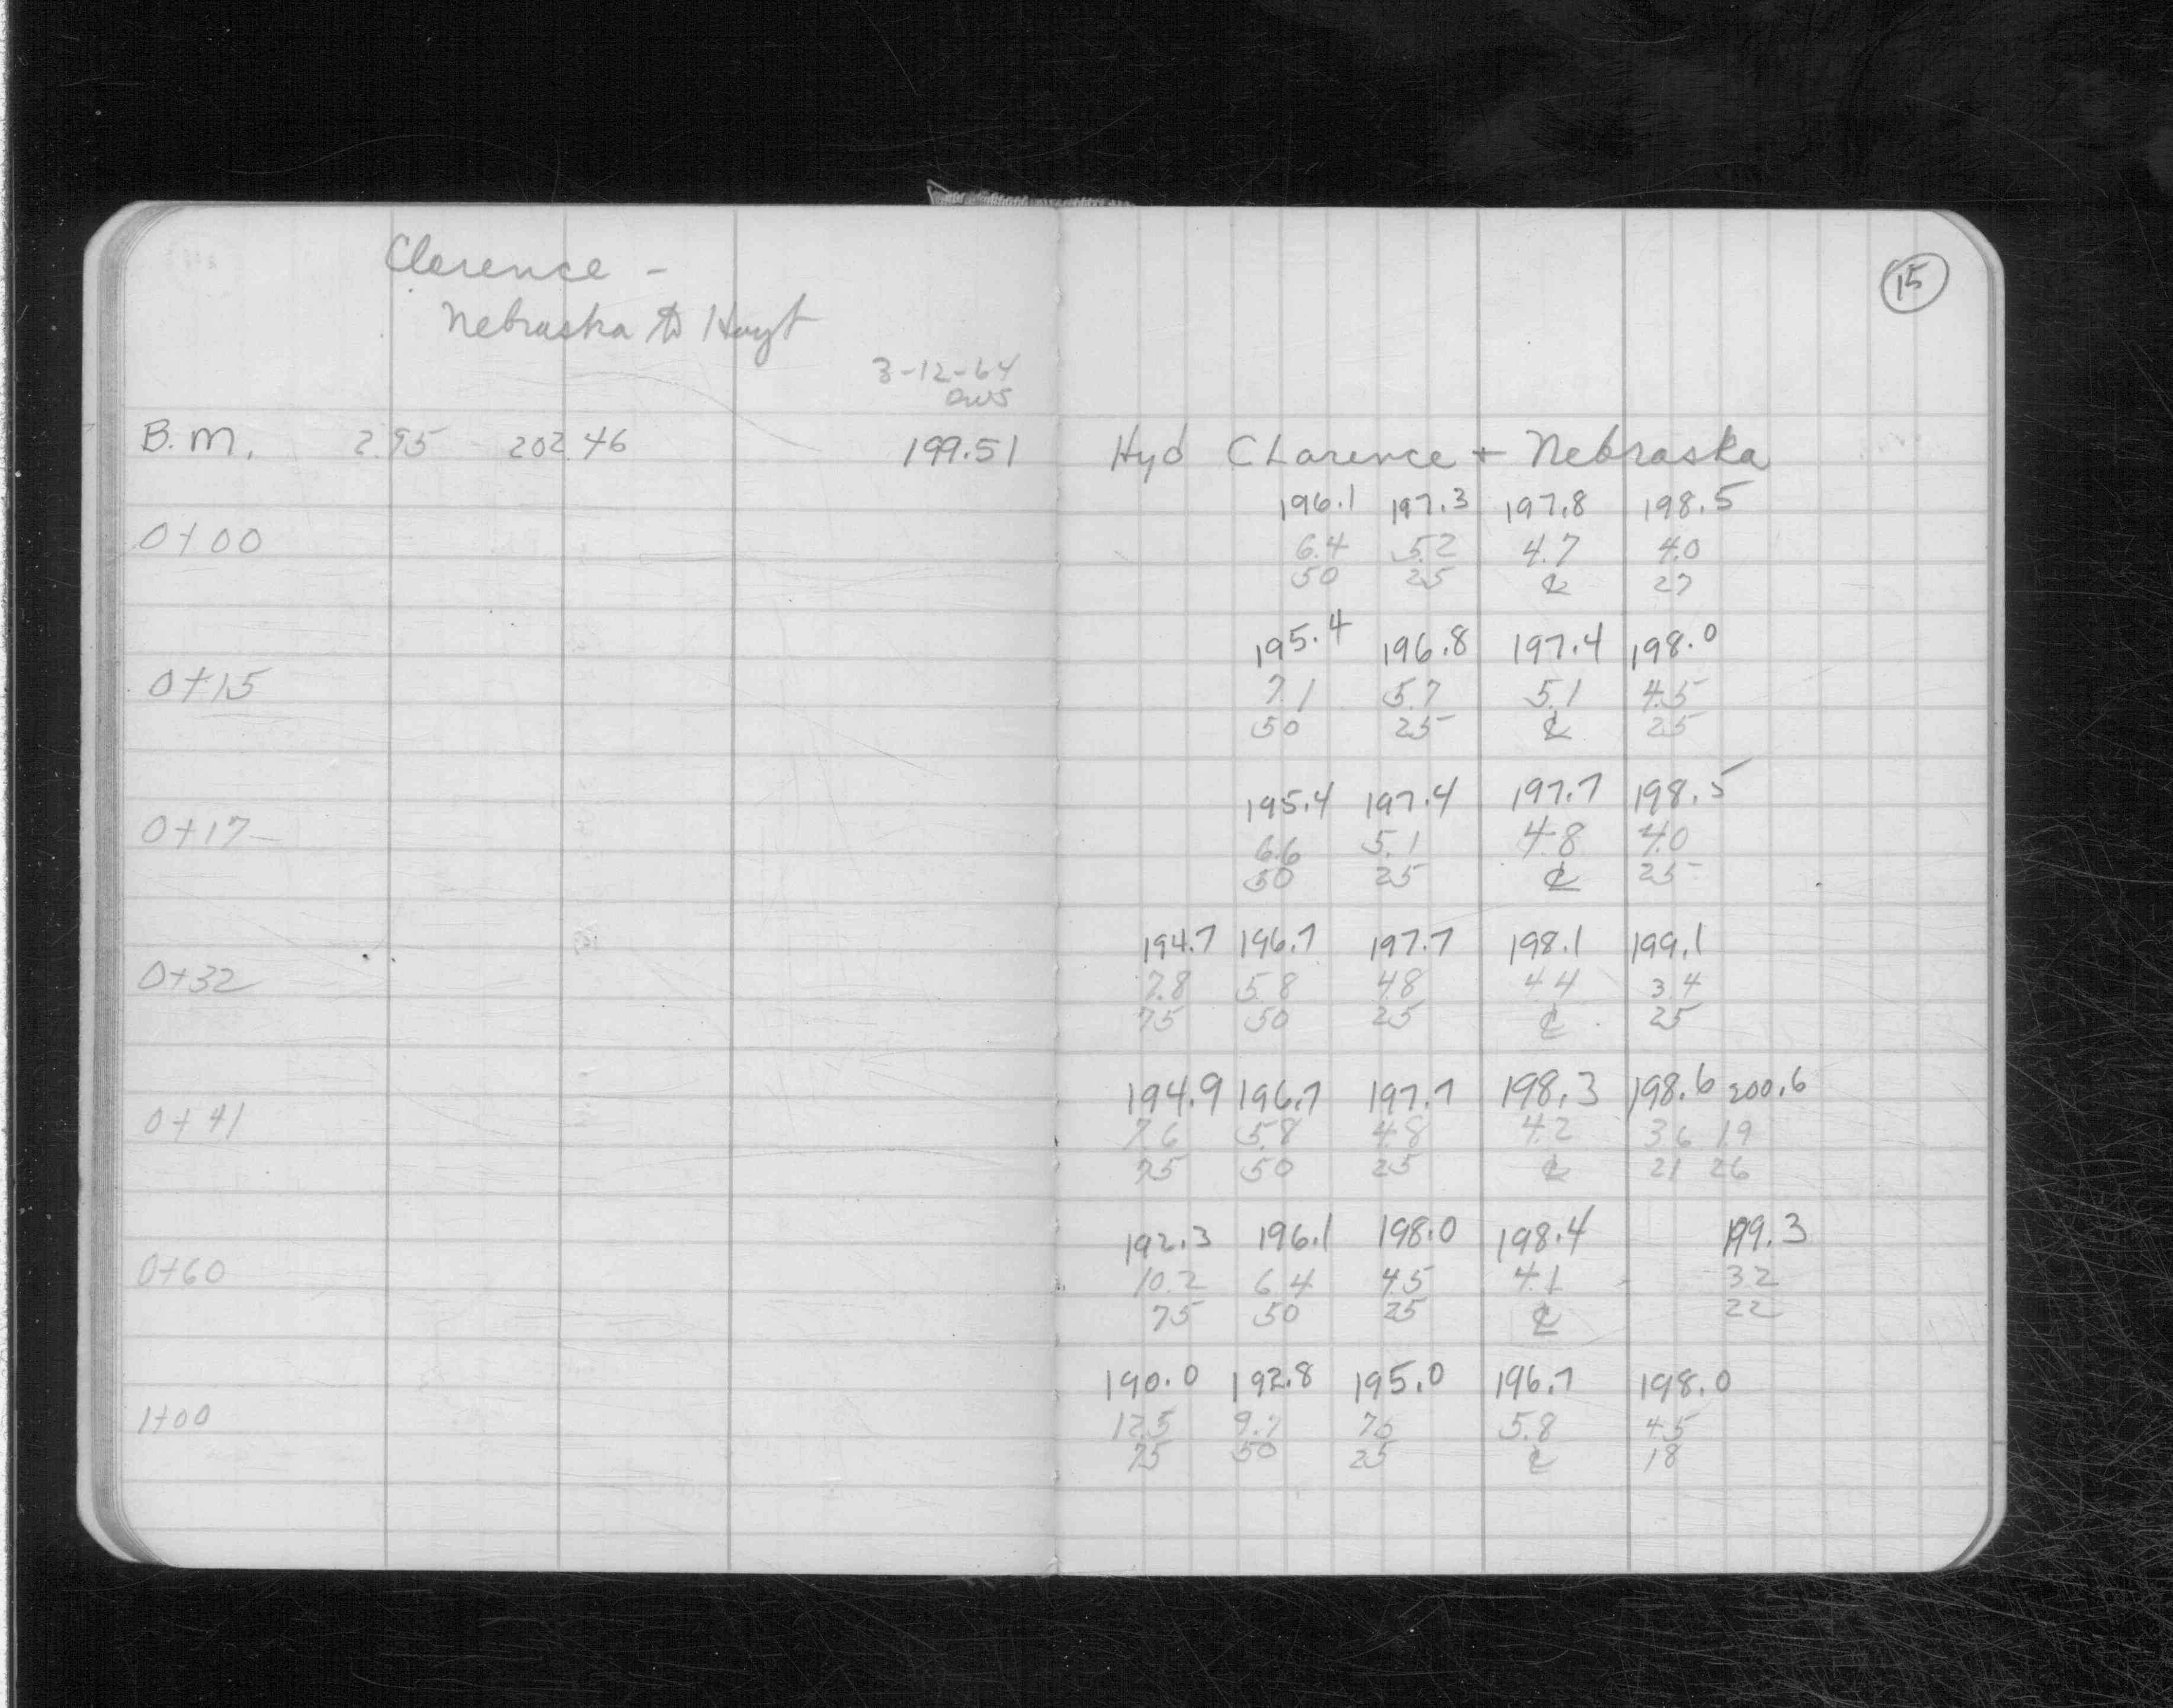 Clarence -
Nebraska to Hoyt
15
3-12-64
OWS
B.M. 2.95 202.46 199.51 Hyd CLarence + Nebraska
196.1 197.3 197.8 198.5
0+00 6.4 5.2 4.7 4.0
50 25 ℄ 27
195.4 196.8 197.4 198.0
0+15 7.1 5.7 5.1 4.5
50 25 ℄ 25
195.4 197.4 197.7 198.5
0+17 6.6 5.1 4.8 4.0
50 25 ℄ 25
194.7 196.7 197.7 198.1 199.1
0+32 7.8 5.8 4.8 4.4 3.4
75 50 25 ℄ 25
194.9 196.7 197.7 198.3 198.6 200.6
0+41 7.6 5.8 4.8 4.2 3.6 1.9
75 50 25 ℄ 21 26
192.3 196.1 198.0 198.4 199.3
0+60 10.2 6.4 4.5 4.1 3.2
75 50 25 ℄ 22
190.0 192.8 195.0 196.7 198.0
1+00 12.5 9.7 7.5 5.8 4.5
75 50 25 ℄ 18